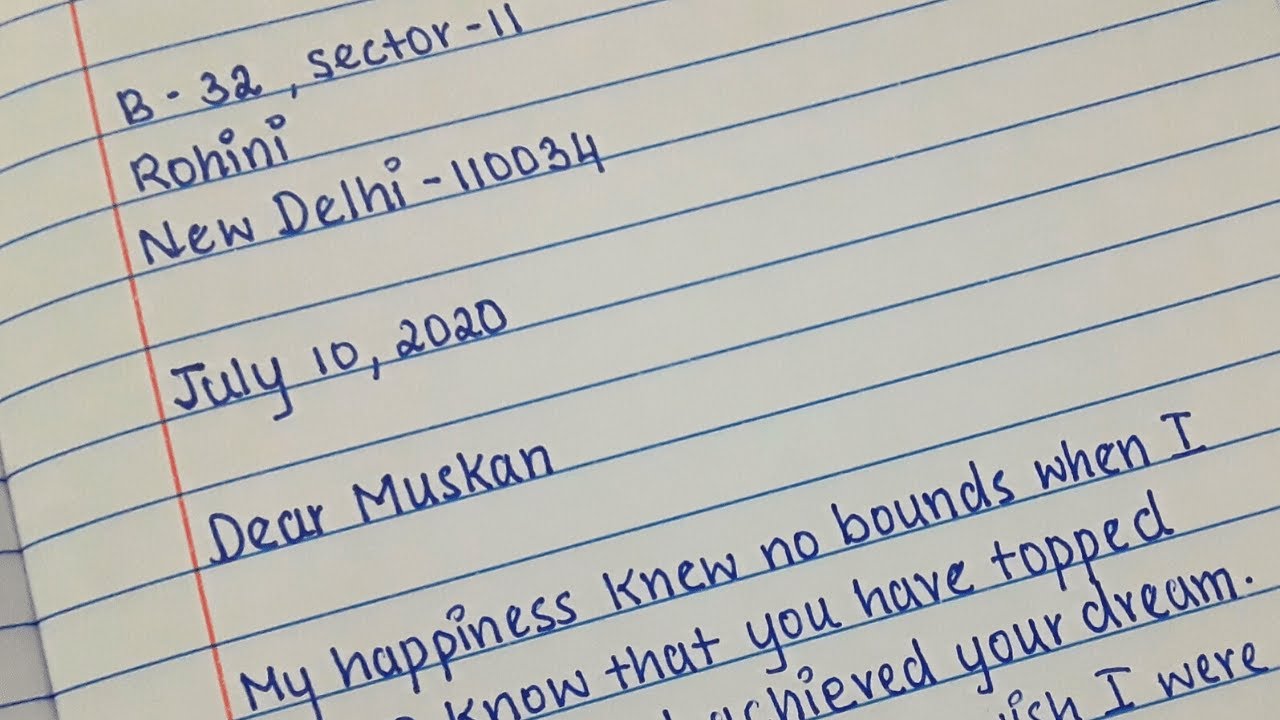 B - 32, sector - 11
Rohini
New Delhi - 110034
July 10, 2020
Dear Muskan
My happiness knew no bounds when I
know that you have topped
achieved your dream.
I were